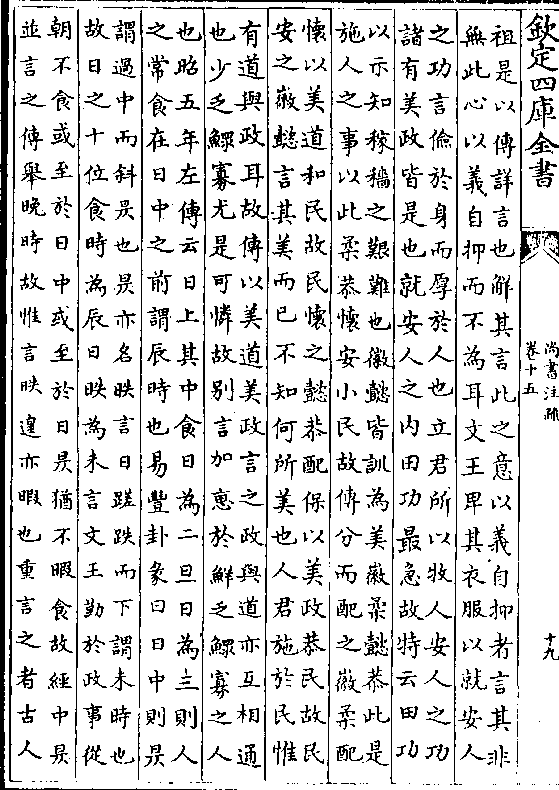 欽定四庫全書
尚書注疏
卷十五
十九
祖是以傳詳言也解其言此之意以義自抑者言其非
無此心以義自抑而不為耳文王卑其衣服以就安人
之功言儉於身而厚於人也立君所以牧人安人之功
諸有美政皆是也就安人之内田功最急故特云田功
以示知稼穡之艱難也徽懿皆訓為美徽柔懿恭此是
施人之事以此柔恭懷安小民故傳分而配之徽柔配
懷以美道和民故民懷之懿恭配保以美政恭民故民
安之徽懿言其美而已不知何所美也人君施於民惟
有道與政耳故傳以美道美政言之政與道亦互相通
也少乏鰥寡尤是可憐故别言加惠於鮮乏鰥寡之人
也昭五年左傳云日上其中食日為二旦日為三則人
之常食在日中之前謂辰時也易豐卦彖曰日中則昃
謂過中而斜昃也昃亦名昳言日蹉跌而下謂未時也
故日之十位食時為辰日昳為未言文王勤於政事從
朝不食或至於日中或至於日昃猶不暇食故經中昃
並言之傳舉晚時故惟言昳遑亦暇也重言之者古人